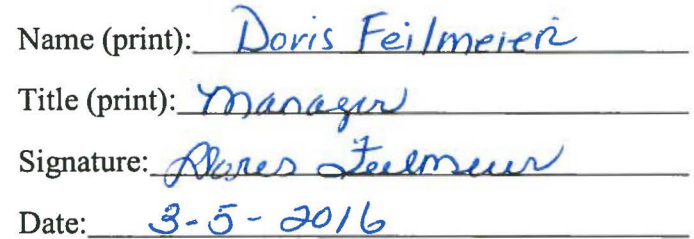 Name (print): Doris Feilmeier
Title (print): Manager
Signature: Doris Feilmeier
Date: 3-5-2016